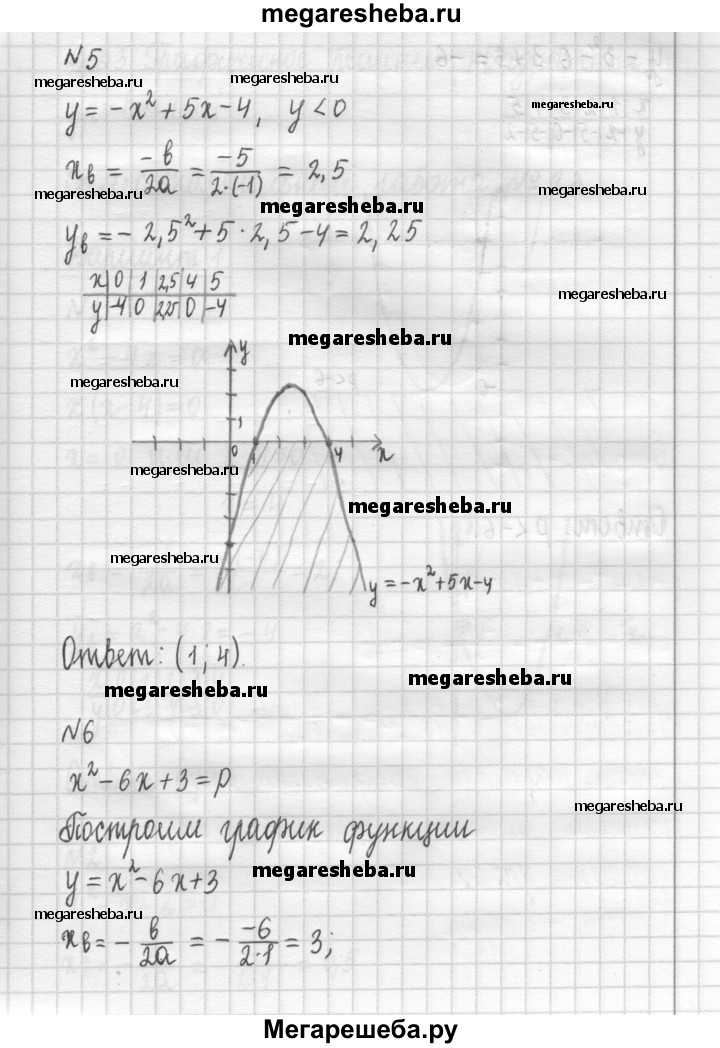 megaresheba.ru
N5
megaresheba.ru megaresheba.ru
y = -x² + 5x - 4, y < 0
megaresheba.ru
x_в = -в/2a = -5/2·(-1) = 2,5
megaresheba.ru megaresheba.ru
megaresheba.ru
y_в = - 2,5² + 5 · 2,5 - 4 = 2,25
x 0 1 2,5 4 5
y -4 0 2,25 0 -4
megaresheba.ru
megaresheba.ru
y
megaresheba.ru
1
0 1 4 x
megaresheba.ru
megaresheba.ru
megaresheba.ru
y = -x² + 5x - 4
Ответ: (1; 4).
megaresheba.ru megaresheba.ru
N6
x² - 6x + 3 = p
megaresheba.ru
Построим график функции
megaresheba.ru
y = x² - 6x + 3
megaresheba.ru
x_в = - в/2a = - -6/2·1 = 3;
Мегарешеба.ру